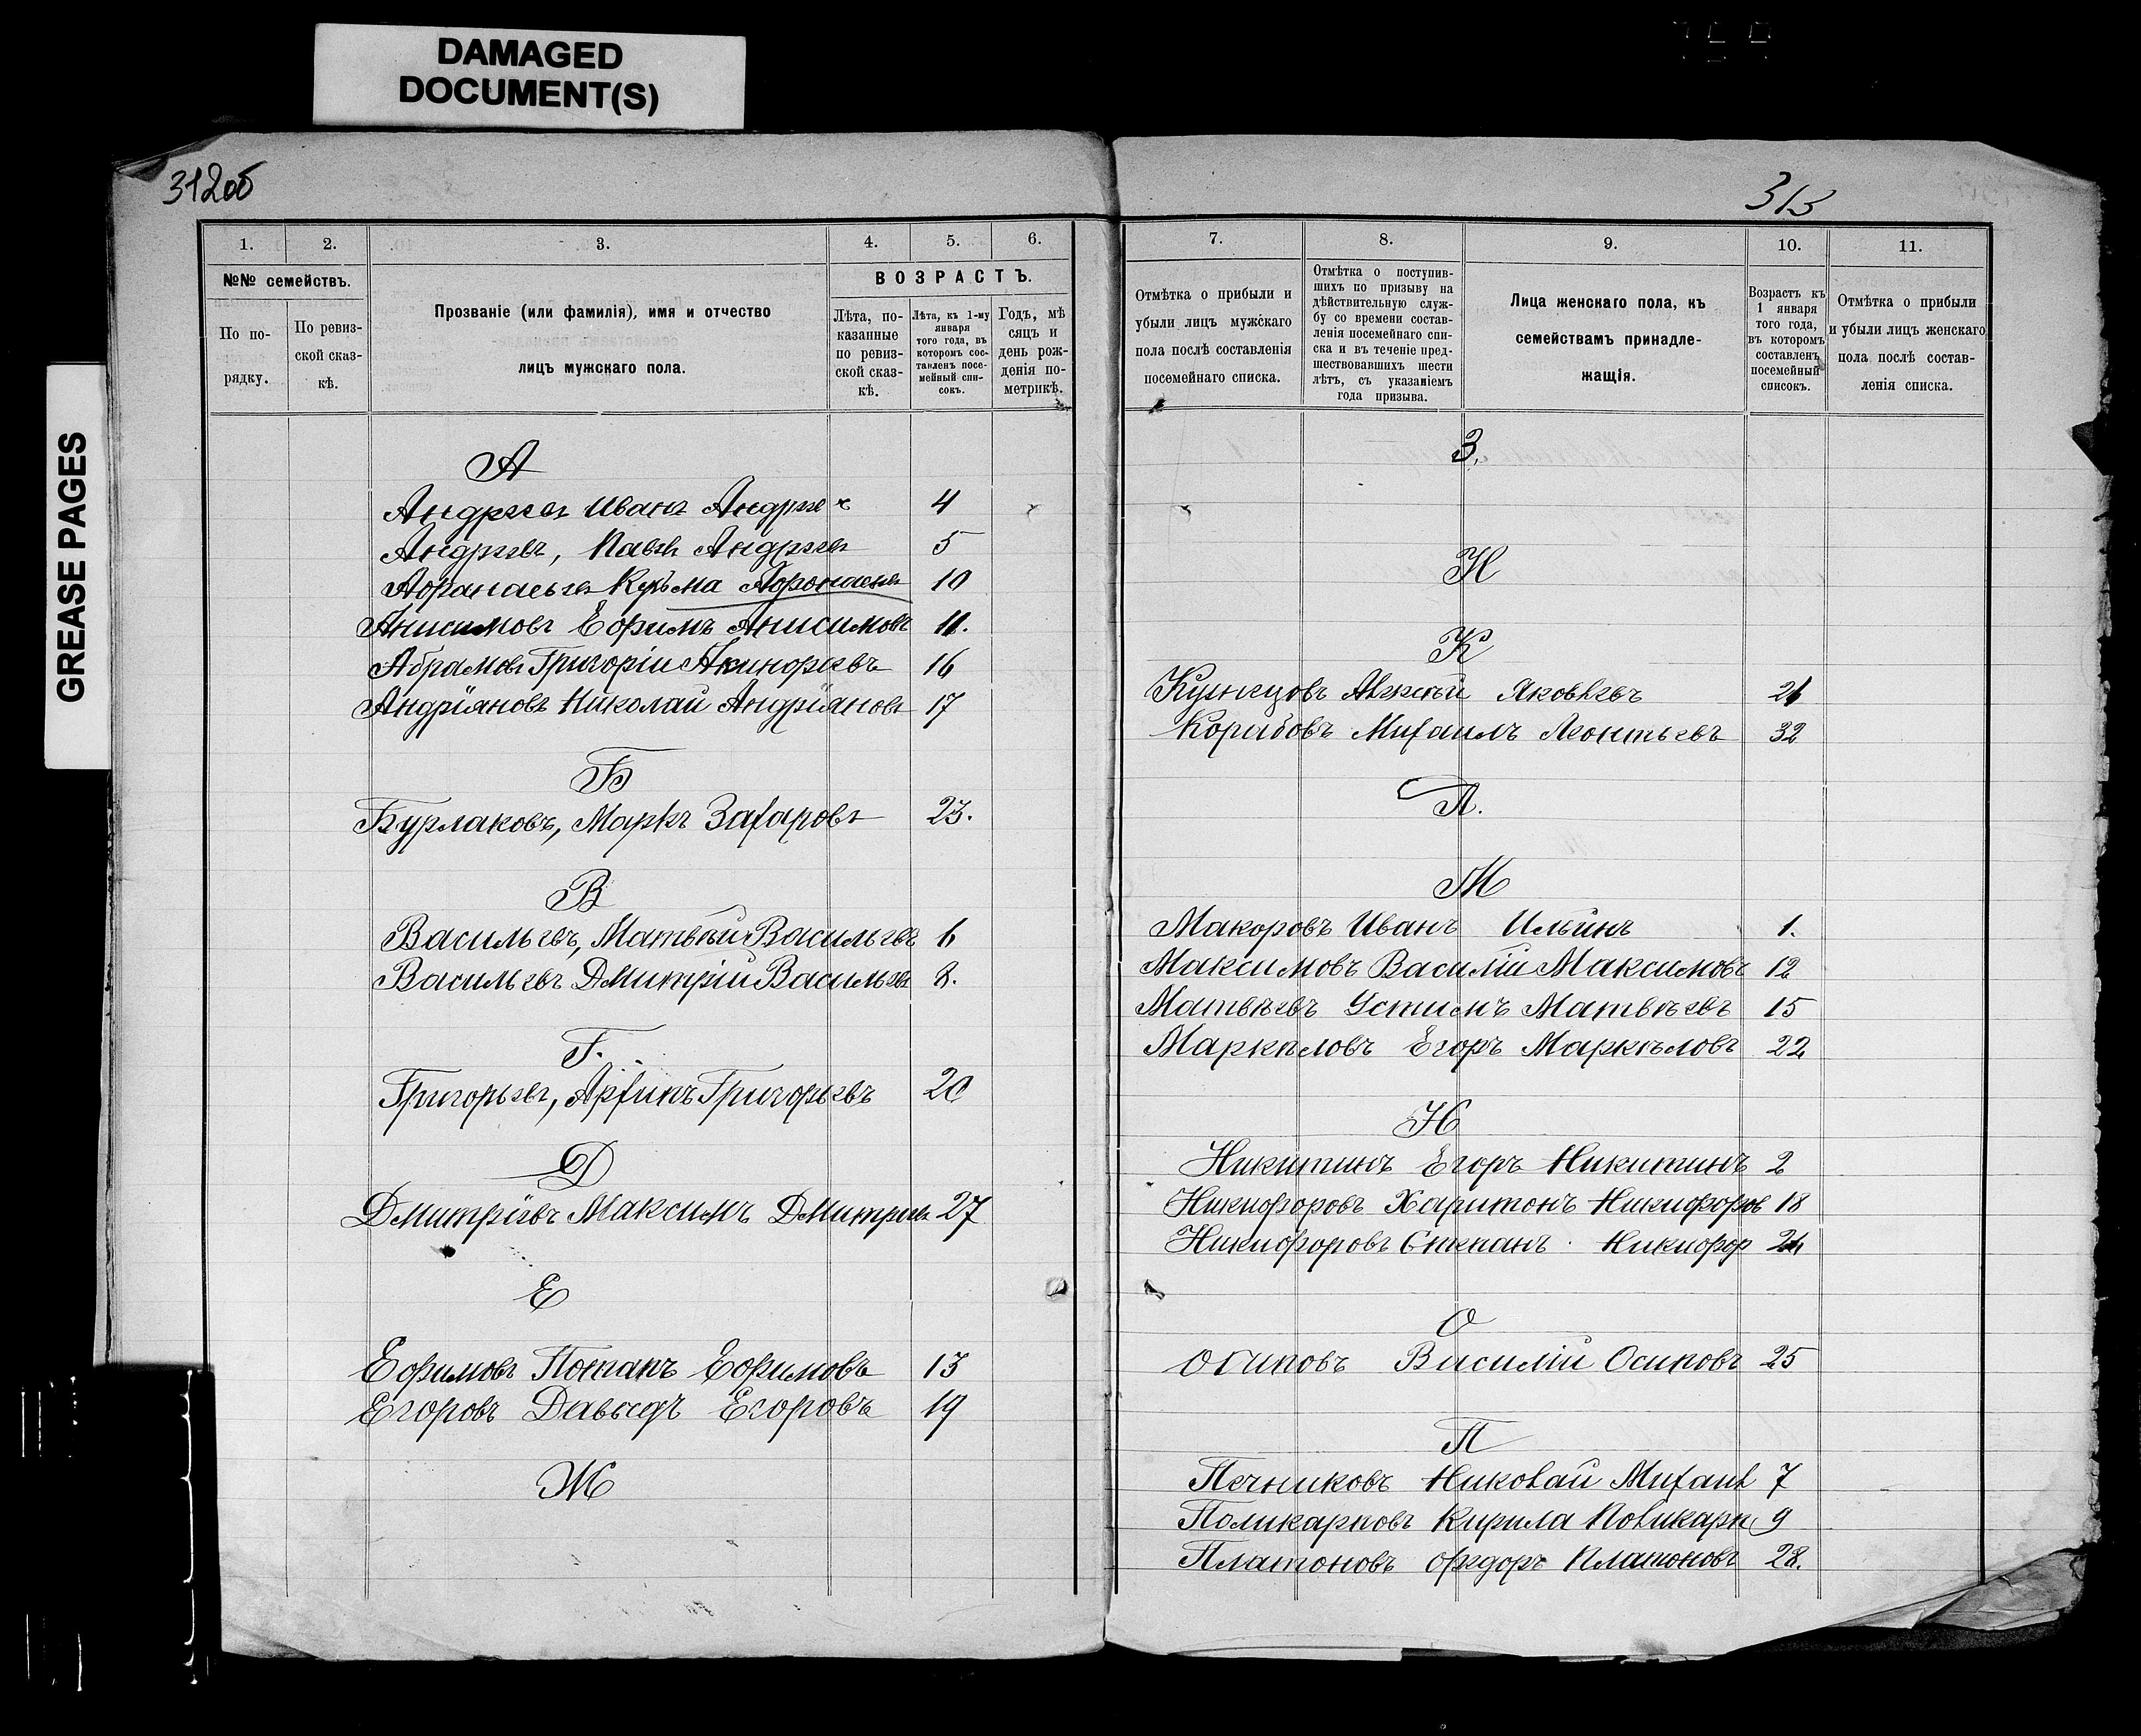 DAMAGED
DOCUMENT(S)
GREASE PAGES
312об
1. 2. 3. 4. 5. 6.
№№ семействъ.
По по-
рядку.
По ревиз-
ской сказ-
кѣ.
Прозваніе (или фамилія), имя и отчество
лицъ мужскаго пола.
ВОЗРАСТЪ.
Лѣта, по-
казанные
по ревиз-
ской сказ-
кѣ.
Лѣта, къ 1-му
января
того года, въ
которомъ сос-
тавленъ посе-
мейный спи-
сокъ.
Годъ, мѣ
сяцъ и
день рож-
денія по-
метрикѣ.
А
Андреевъ Иванъ Андрее 4
Андреевъ, Павелъ Андреевъ 5
Афанасьевъ Кузьма Афонасьевъ 10
Анисимовъ Ефимъ Анисимовъ 11.
Абрамовъ Григорій Акинфіевъ 16
Андріяновъ Николай Андріяновъ 17
Б
Бурлаковъ, Маркъ Захаровъ 23.
В
Васильевъ, Матвѣй Васильевъ 6
Васильевъ Дмитрій Васильевъ 8.
Г.
Григорьевъ, Архипъ Григорьевъ 20
Д
Дмитріевъ Максимъ Дмитріевъ 27
Е
Ефимовъ Потапъ Ефимовъ 13
Егоровъ Давыдъ Егоровъ 19
Ж
313
7. 8. 9. 10. 11.
Отмѣтка о прибыли и
убыли лицъ мужскаго
пола послѣ составленія
посемейнаго списка.
Отмѣтка о поступив-
шихъ по призыву на
дѣйствительную служ-
бу со времени состав-
ленія посемейнаго спи-
ска и въ теченіе пред-
шествовавшихъ шести
лѣтъ, съ указаніемъ
года призыва.
Лица женскаго пола, къ
семействамъ принадле-
жащія.
Возрастъ къ
1 января
того года,
въ которомъ
составленъ
посемейный
списокъ.
Отмѣтка о прибыли
и убыли лицъ женскаго
пола послѣ состав-
ленія списка.
З.
И
К
Кузнецовъ Алексѣй Яковлевъ 21
Корабовъ Михаилъ Леонтьевъ 32
Л.
М
Макоровъ Иванъ Ильинъ 1.
Максимовъ Василій Максимовъ 12
Матвѣевъ Устимъ Матвѣевъ 15
Маркѣловъ Егоръ Маркѣловъ 22
Н
Никитинъ Егоръ Никитинъ 2
Никифоровъ Харитонъ Никифоров 18
Никифоровъ Степанъ Никифор 24
О
Осиповъ Василій Осиповъ 25
П
Печниковъ Николай Михаил 7
Поликарповъ Кирила Поликарп 9
Платоновъ Федоръ Платоновъ 28.